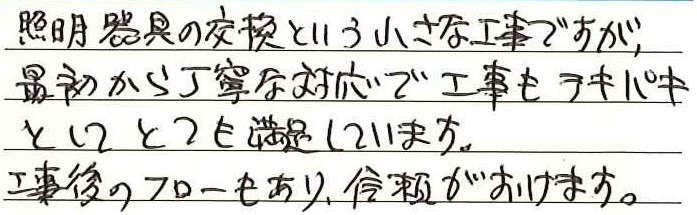 照明器具の交換という小さな工事ですが、
最初から丁寧な対応で工事もテキパキ
としてとても満足しています。
工事後のフローもあり、信頼がおけます。